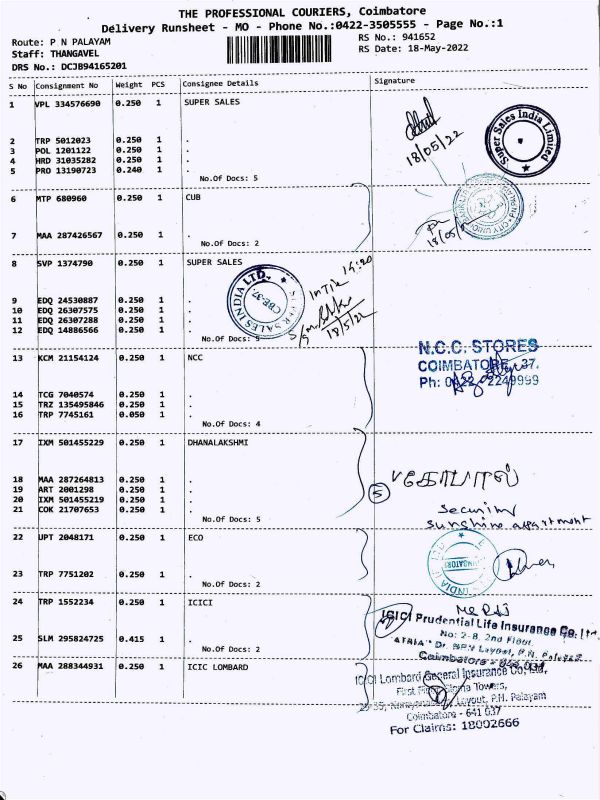 THE PROFESSIONAL COURIERS, Coimbatore
Delivery Runsheet - MO - Phone No.:0422-3505555 - Page No.:1
Route: P N PALAYAM
RS No.: 941652
Staff: THANGAVEL
RS Date: 18-May-2022
DRS No.: DCJB94165201
S No Consignment No Weight PCS Consignee Details Signature
1 VPL 334576690 0.250 1 SUPER SALES
18/05/22
Super Sales India Limited
2 TRP 5012023 0.250 1 .
3 POL 1201122 0.250 1 .
4 HRD 31035282 0.250 1 .
5 PRO 13190723 0.240 1 .
No.Of Docs: 5
6 MTP 680960 0.250 1 CUB
7 MAA 287426567 0.250 1 .
No.Of Docs: 2
8 SVP 1374790 0.250 1 SUPER SALES
SUPER SALES INDIA LTD.
CBE-37.
18/5/22
9 EDQ 24530887 0.250 1 .
10 EDQ 26307575 0.250 1 .
11 EDQ 26307288 0.250 1 .
12 EDQ 14886566 0.250 1 .
No.Of Docs: 5
13 KCM 21154124 0.250 1 NCC
N.C.C. STORES
COIMBATORE, 37.
Ph: 0422 - 2249999
14 TCG 7040574 0.250 1 .
15 TRZ 135495846 0.250 1 .
16 TRP 7745161 0.050 1 .
No.Of Docs: 4
17 IXM 501455229 0.250 1 DHANALAKSHMI
18 MAA 287264813 0.250 1 .
19 ART 2001298 0.250 1 .
20 IXM 501455219 0.250 1 .
21 COK 21707653 0.250 1 .
No.Of Docs: 5
5
கோபால்
Security
sunshine apartment
22 UPT 2048171 0.250 1 ECO
23 TRP 7751202 0.250 1 .
No.Of Docs: 2
24 TRP 1552234 0.250 1 ICICI
ICICI Prudential Life Insurance Co. Ltd.
No: 2-8, 2nd Floor,
25 SLM 295824725 0.415 1 .
No.Of Docs: 2
Coimbatore - 641 037
26 MAA 288344931 0.250 1 ICIC LOMBARD
ICICI Lombard General Insurance Co. Ltd.,
Layout, P.N. Palayam
Coimbatore - 641 037
For Claims: 18002666